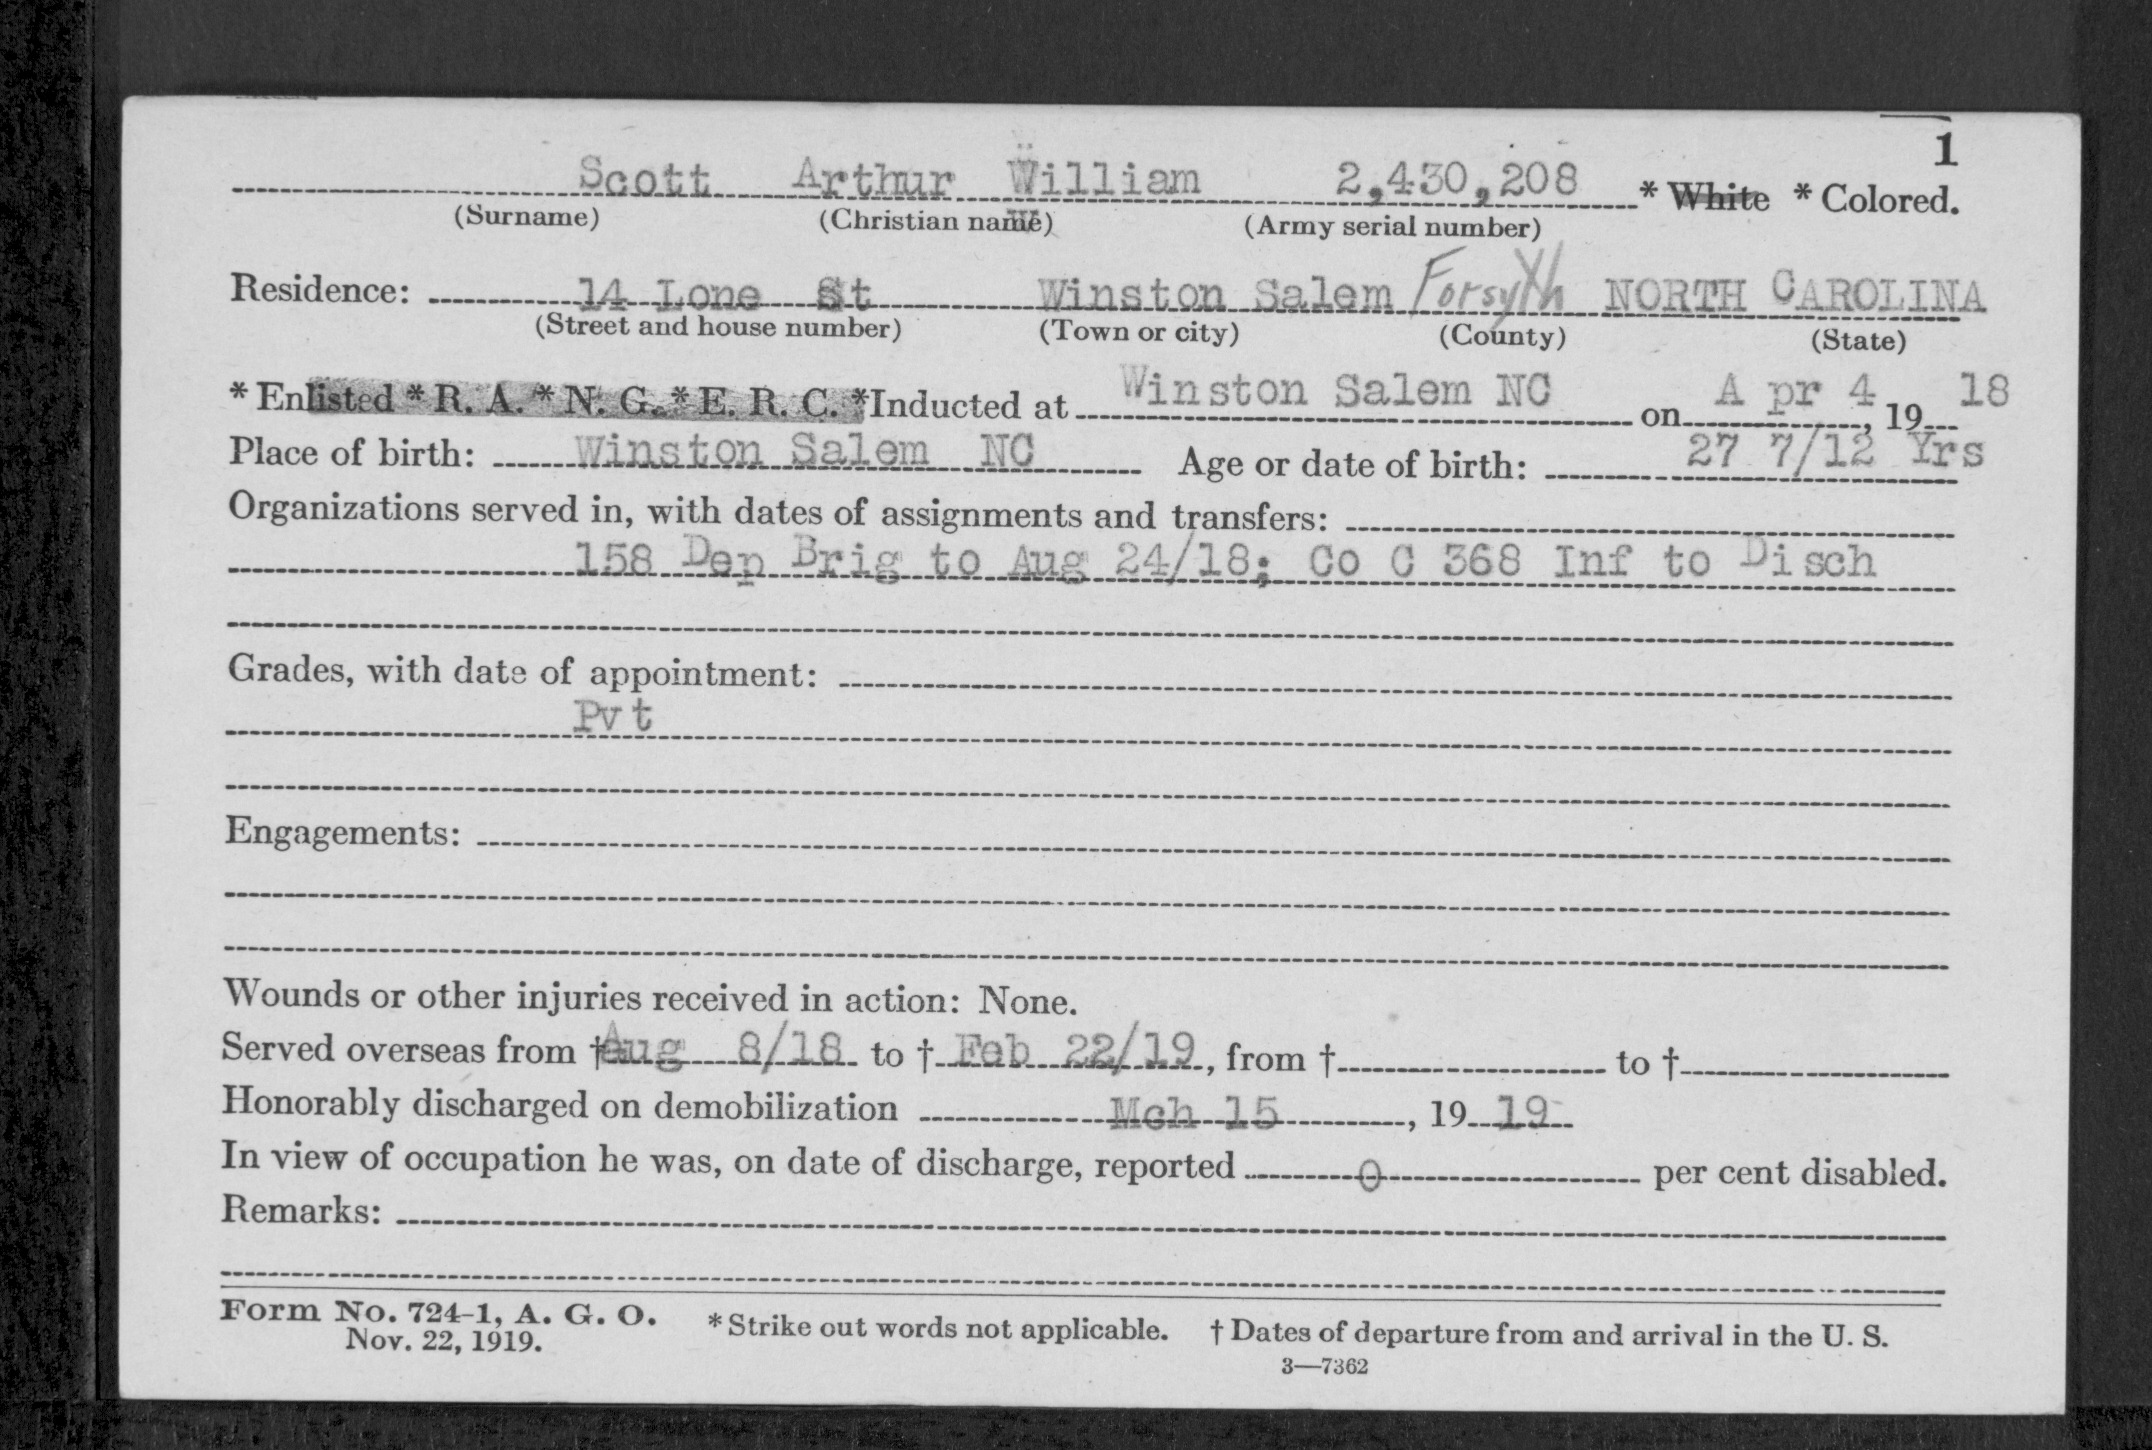 1
Scott Arthur William 2,430,208 * White * Colored.
(Surname) (Christian name) (Army serial number)
Residence: 14 Lone St Winston Salem Forsyth NORTH CAROLINA
(Street and house number) (Town or city) (County) (State)
* Enlisted * R. A. * N. G. * E. R. C. *Inducted at Winston Salem NC on Apr 4, 19 18
Place of birth: Winston Salem NC Age or date of birth: 27 7/12 Yrs
Organizations served in, with dates of assignments and transfers:
158 Dep Brig to Aug 24/18; Co C 368 Inf to Disch
Grades, with date of appointment:
Pvt
Engagements:
Wounds or other injuries received in action: None.
Served overseas from † Aug 8/18 to † Feb 22/19, from † to †
Honorably discharged on demobilization Mch 15, 19 19
In view of occupation he was, on date of discharge, reported 0 per cent disabled.
Remarks:
Form No. 724-1, A. G. O. * Strike out words not applicable. † Dates of departure from and arrival in the U. S.
Nov. 22, 1919.
3—7362